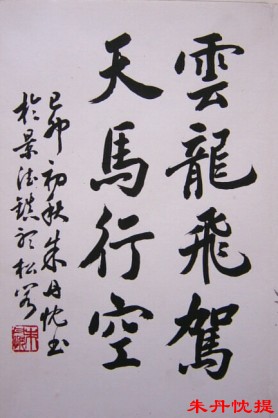 雲龍飛駕
天馬行空
己卯初秋朱丹忱书
於景德鎮聽松閣
朱丹忱提